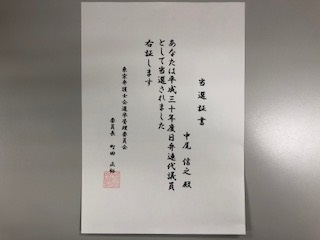 当選証書
中尾信之殿
あなたは平成三十年度日弁連代議員
として当選されました
右証します
東京弁護士会選挙管理委員会
委員長 町田正裕